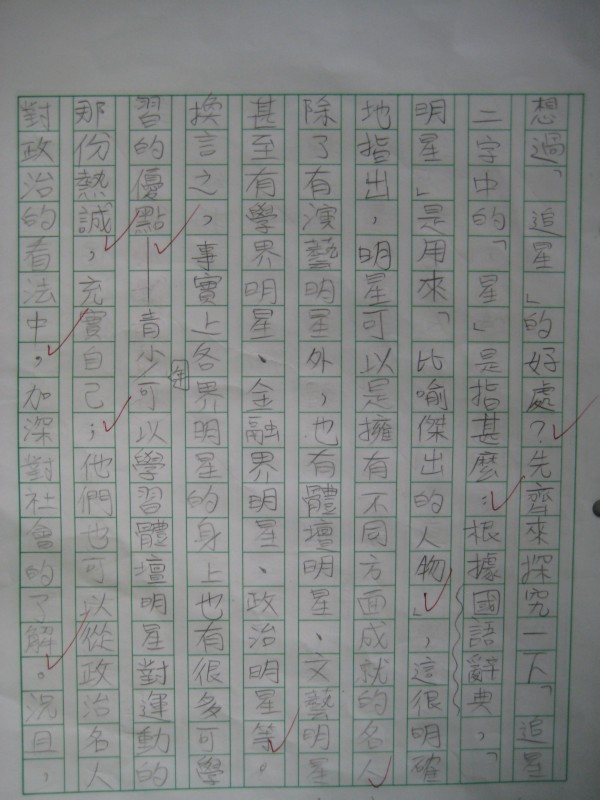 想過「追星」的好處？先齊來探究一下「追星
二字中的「星」是指甚麼：根據國語辭典，「
明星」是用來「比喻傑出的人物」，這很明確
地指出，明星可以是擁有不同方面成就的名人
除了有演藝明星外，也有體壇明星、文藝明星
甚至有學界明星、金融界明星、政治明星等。
換言之，事實上各界明星的身上也有很多可學
習的優點——青少年可以學習體壇明星對運動的
那份熱誠，充實自己；他們也可以從政治名人
對政治的看法中，加深對社會的了解。況且，